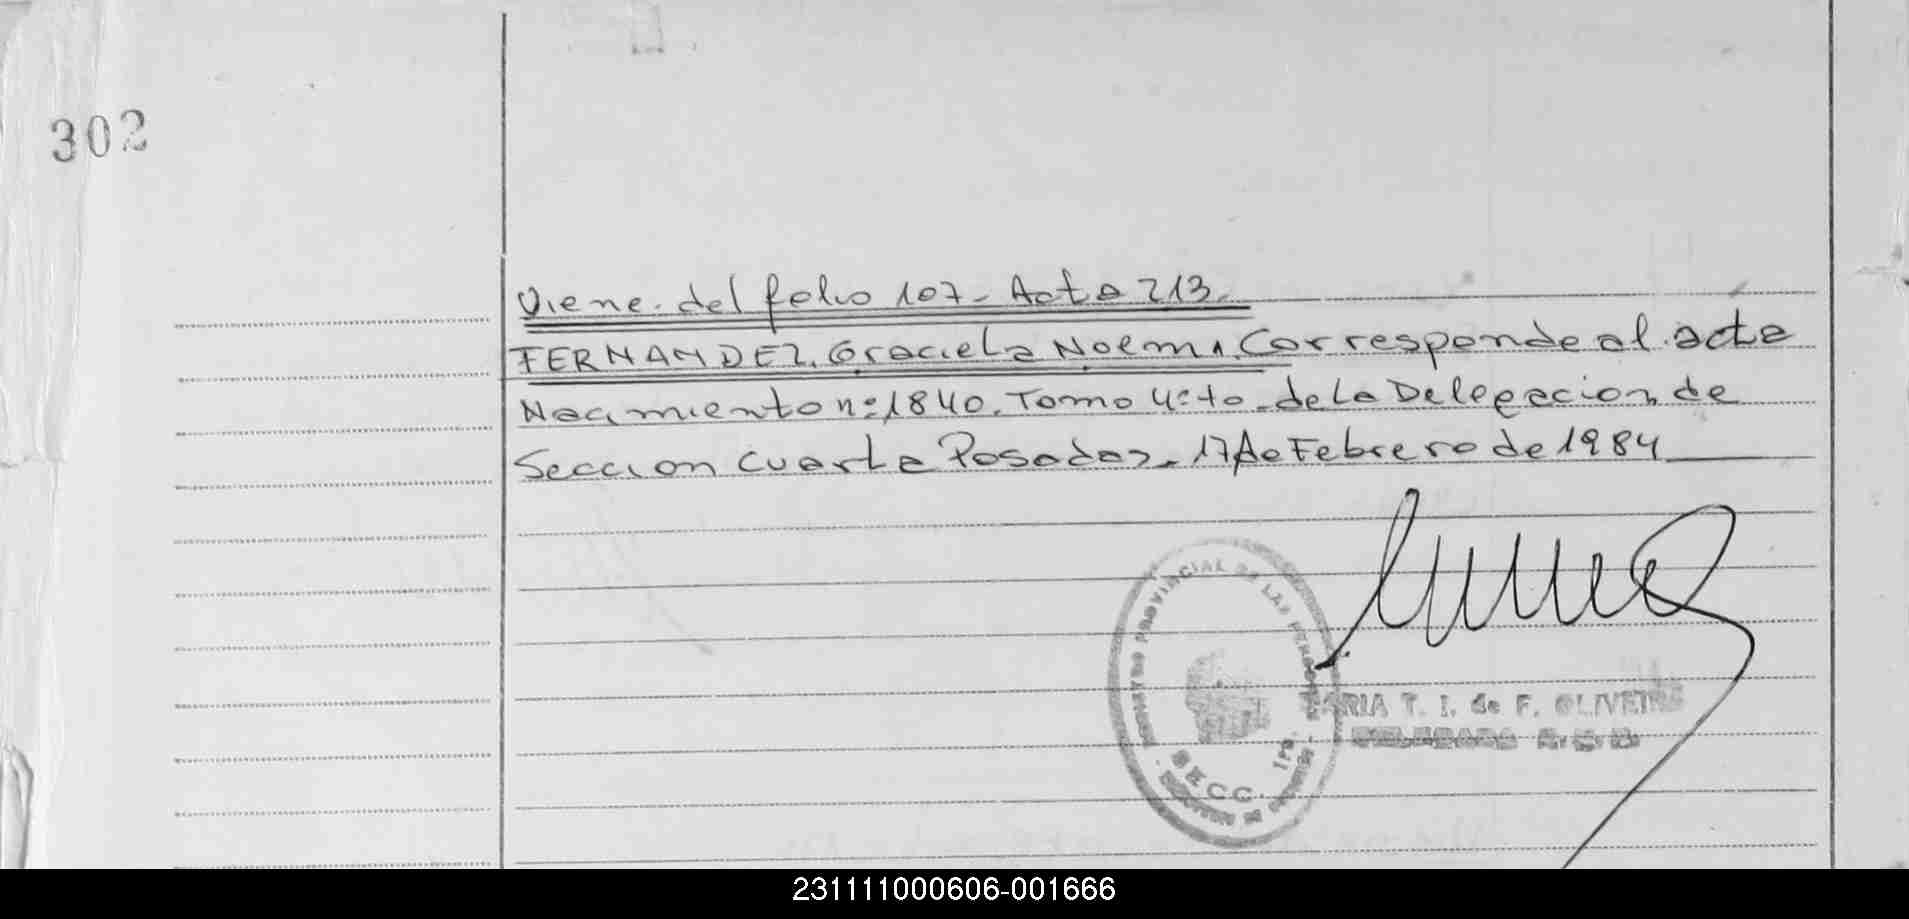 302
Viene del folio 107- Acta 213.
FERNANDEZ, Graciela Noemi. Corresponde al acta
Nacimiento nº 1840. Tomo 4º to - de La Delegacion de
Seccion cuarta Posadas - 17 de Febrero de 1984
PROVINCIAL DE LAS PERSONAS
SECC. 1ra.
MARIA T. I. de F. OLIVEIRA
231111000606-001666